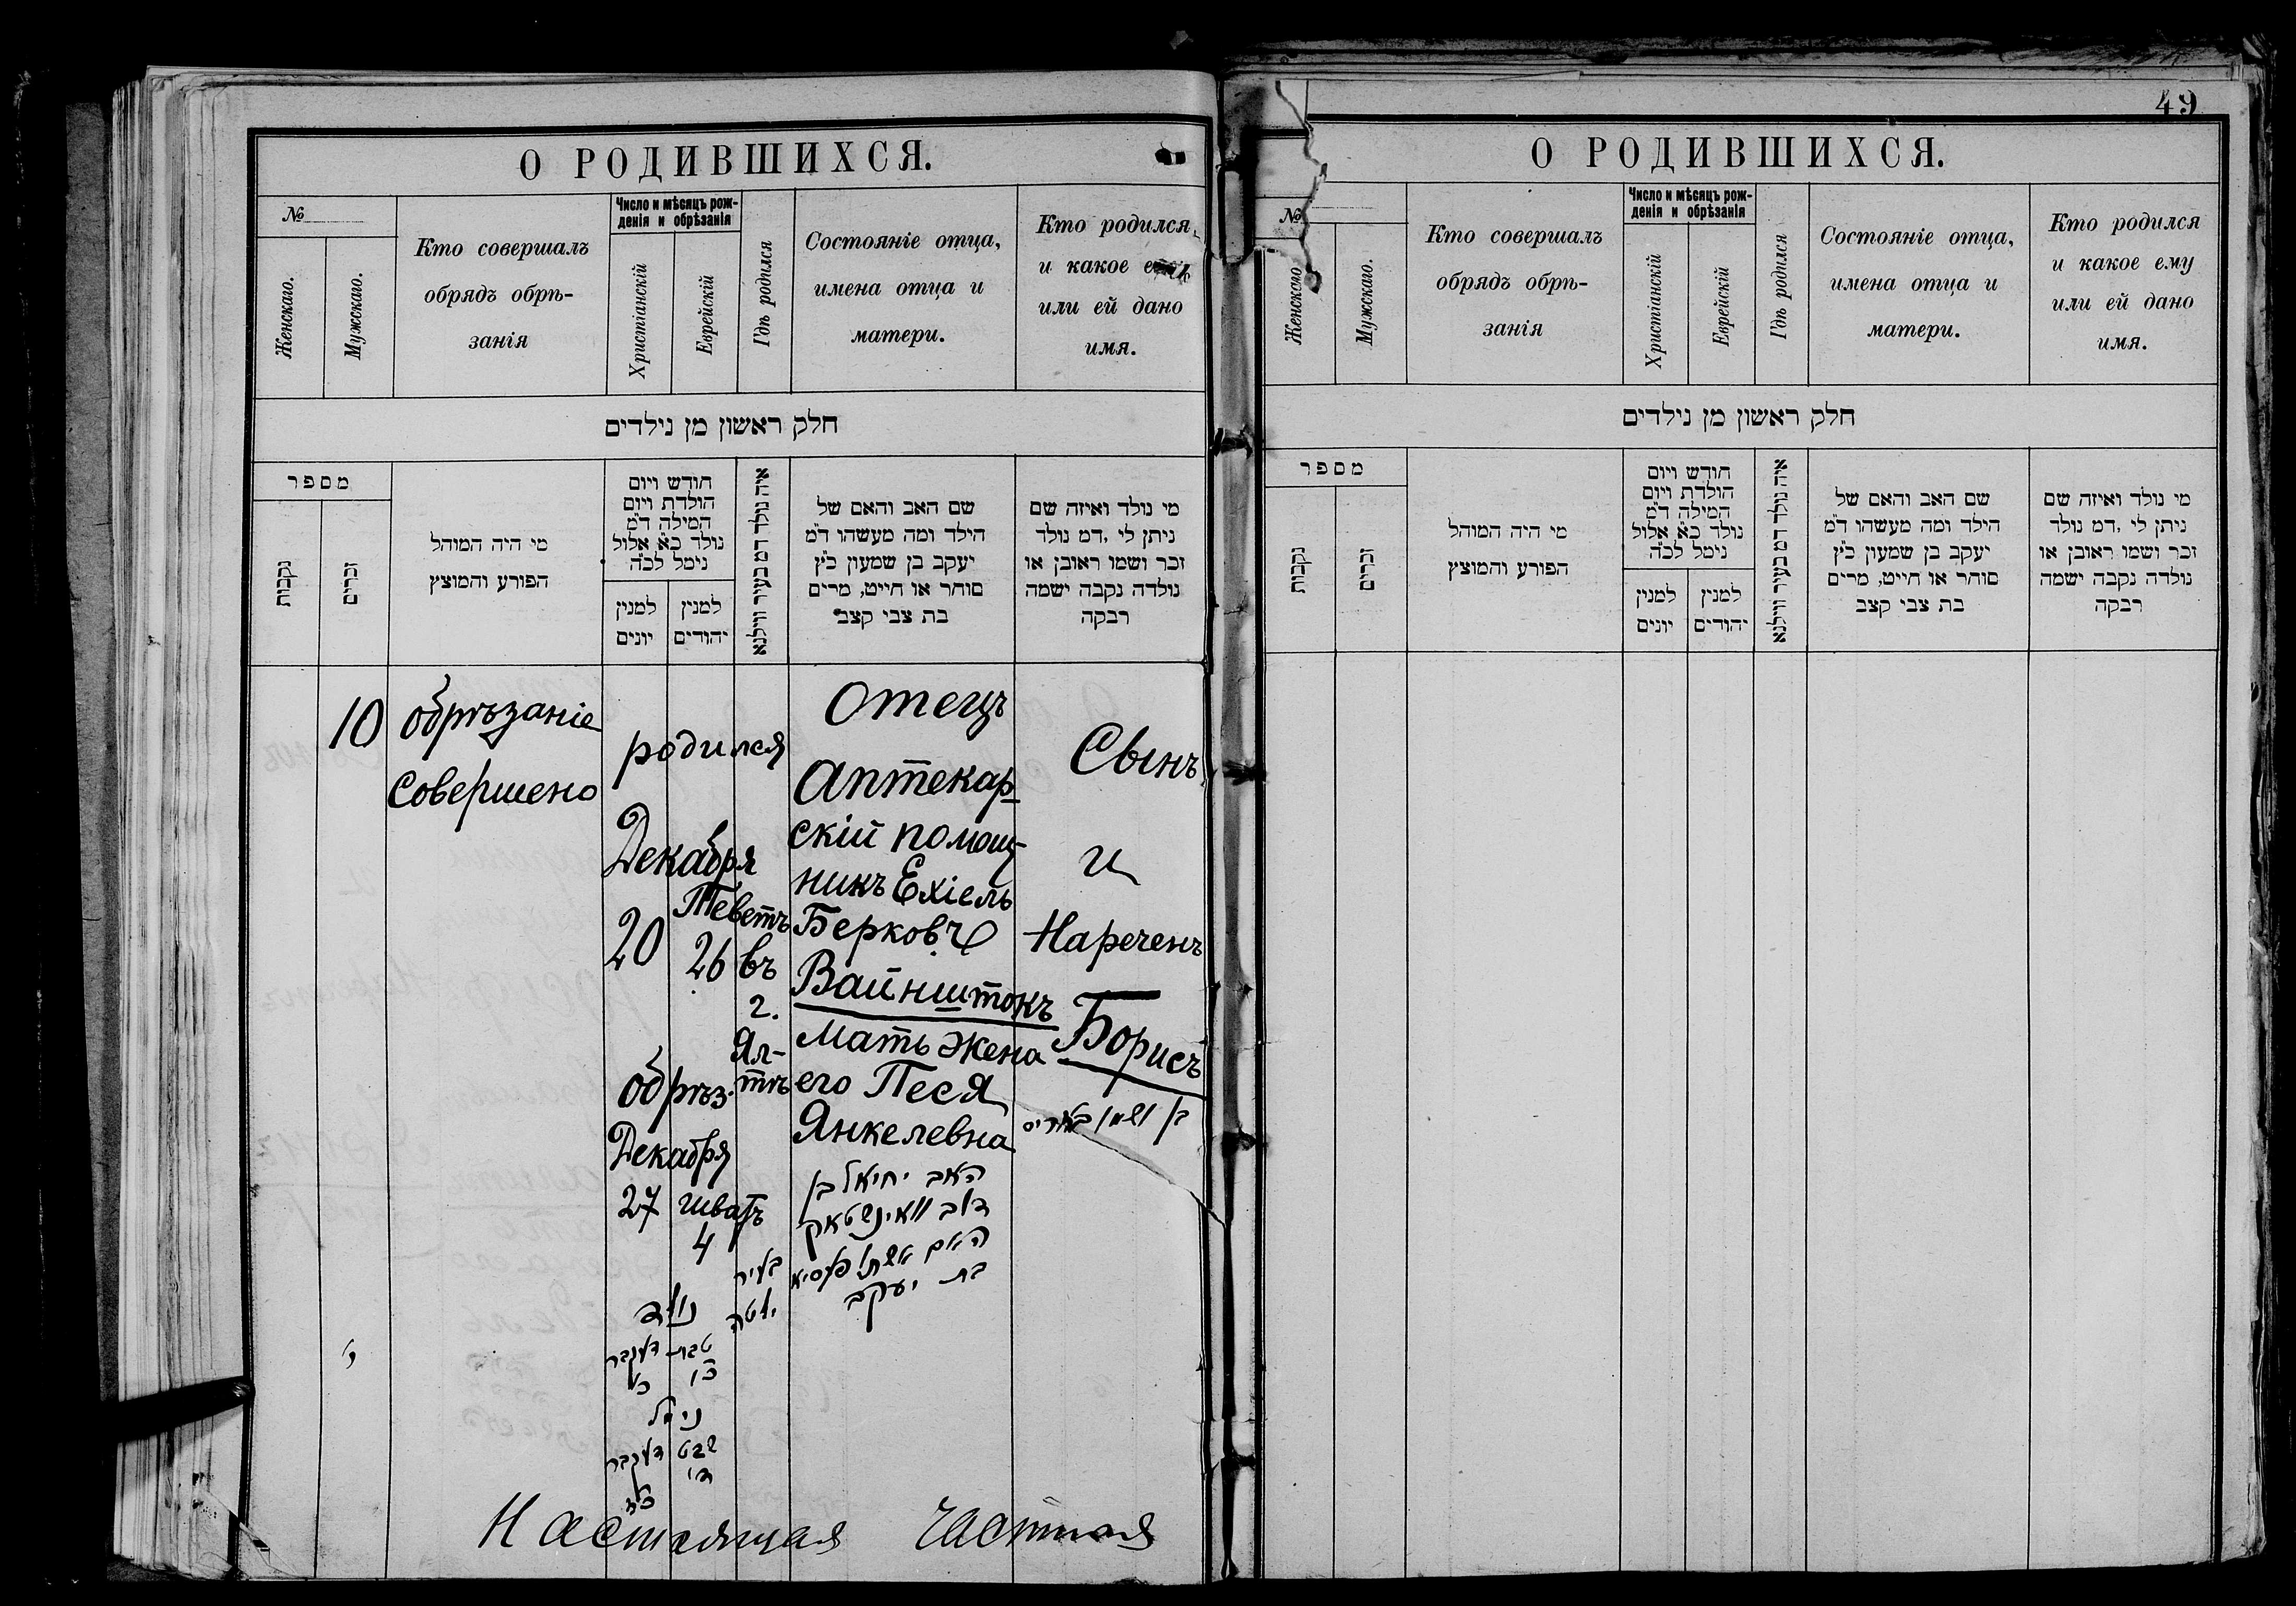 О РОДИВШИХСЯ.
№
Женскаго.
Мужскаго.
Кто совершалъ
обрядъ обрѣ-
занія
Число и мѣсяцъ рож-
денія и обрѣзанія
Христіанскій
Еврейскій
Гдѣ родился
Состояніе отца,
имена отца и
матери.
Кто родился,
и какое ему
или ей дано
имя.
חלק ראשון מן נילדים
מספר
נקבות
זכרים
מי היה המוהל
הפורע והמוצץ
חודש ויום
הולדת ויום
המילה ד״מ
נולד כ״א אלול
נימל לכ״ה
למנין
יונים
למנין
יהודים
איה נולד דמ בעיר ווילנא
שם האב והאם של
הילד ומה מעשהו ד״מ
יעקב בן שמעון כ״ץ
סוחר או חייט, מרים
בת צבי קצב
מי נולד ואיזה שם
ניתן לי ,דמ נולד
זכר ושמו ראובן או
נולדה נקבה ישמה
רבקה
10
обрѣзаніе
совершено
родился
Декабря
20
Теветъ
26
въ
г.
Ял-
тѣ
обрѣз.
Декабря
27
шватъ
4
נולד
טבת
דעקבר
כו
נימל
שבט
דעקבר
בעיר
יאלטה
Отецъ
Аптекар-
скій помощ-
никъ Ехіель
Берковъ
Вайнштокъ
Мать жена
его Песя
Янкелевна
האב יחיאל בן
דוב וואינשטאק
האם אשתו פעסיא
בת יעקב
Сынъ
и
Нареченъ
Борисъ
בן ושמו באריס
Настоящая частная
49
О РОДИВШИХСЯ.
№
Женскаго
Мужскаго.
Кто совершалъ
обрядъ обрѣ-
занія
Число и мѣсяцъ рож-
денія и обрѣзанія
Христіанскій
Еврейскій
Гдѣ родился
Состояніе отца,
имена отца и
матери.
Кто родился
и какое ему
или ей дано
имя.
חלק ראשון מן נילדים
מספר
נקבות
זכרים
מי היה המוהל
הפורע והמוצץ
חודש ויום
הולדת ויום
המילה ד״מ
נולד כ״א אלול
נימל לכ״ה
למנין
יונים
למנין
יהודים
איה נולד דמ בעיר ווילנא
שם האב והאם של
הילד ומה מעשהו ד״מ
יעקב בן שמעון כ״ץ
סוחר או חייט, מרים
בת צבי קצב
מי נולד ואיזה שם
ניתן לי ,דמ נולד
זכר ושמו ראובן או
נולדה נקבה ישמה
רבקה